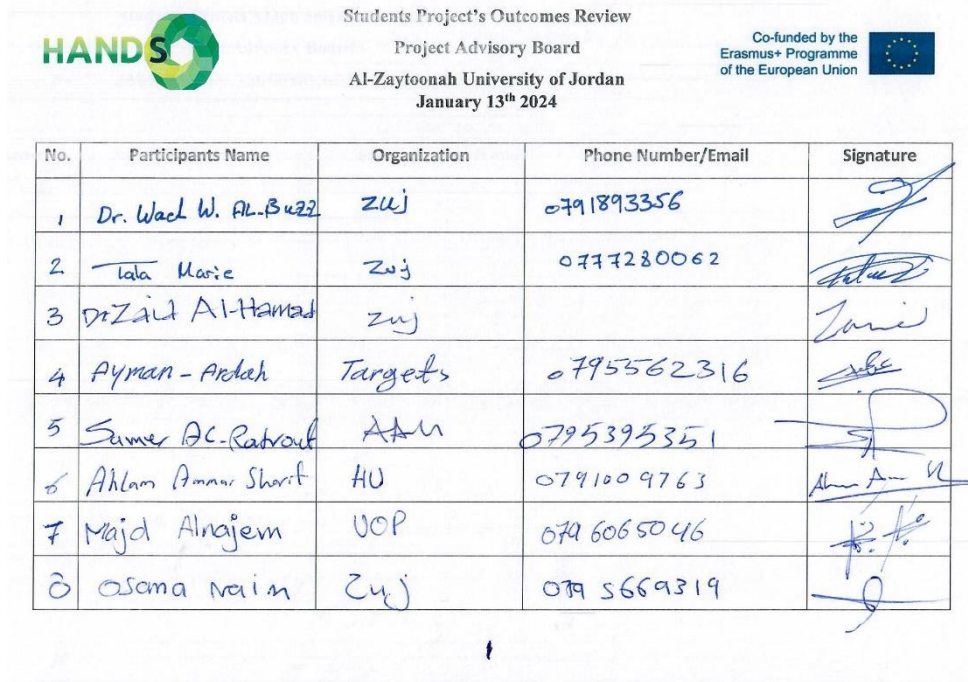 HANDS
Students Project's Outcomes Review
Project Advisory Board
Al-Zaytoonah University of Jordan
January 13th 2024
Co-funded by the
Erasmus+ Programme
of the European Union
No. Participants Name Organization Phone Number/Email Signature
1 Dr. Wael W. AL-Buzz zuj 0791893356
2 Tala Marie Zuj 0777280062
3 Dr Zaid Al-Hamad zuj
4 Ayman - Ardah Targets 0795562316
5 Samer AL-Ratrout AAU 0795395351
6 Ahlam Ammar Sharif HU 0791009763
7 Majd Alnajem UOP 079 6065046
8 Osama Naim Zuj 079 5669319
1